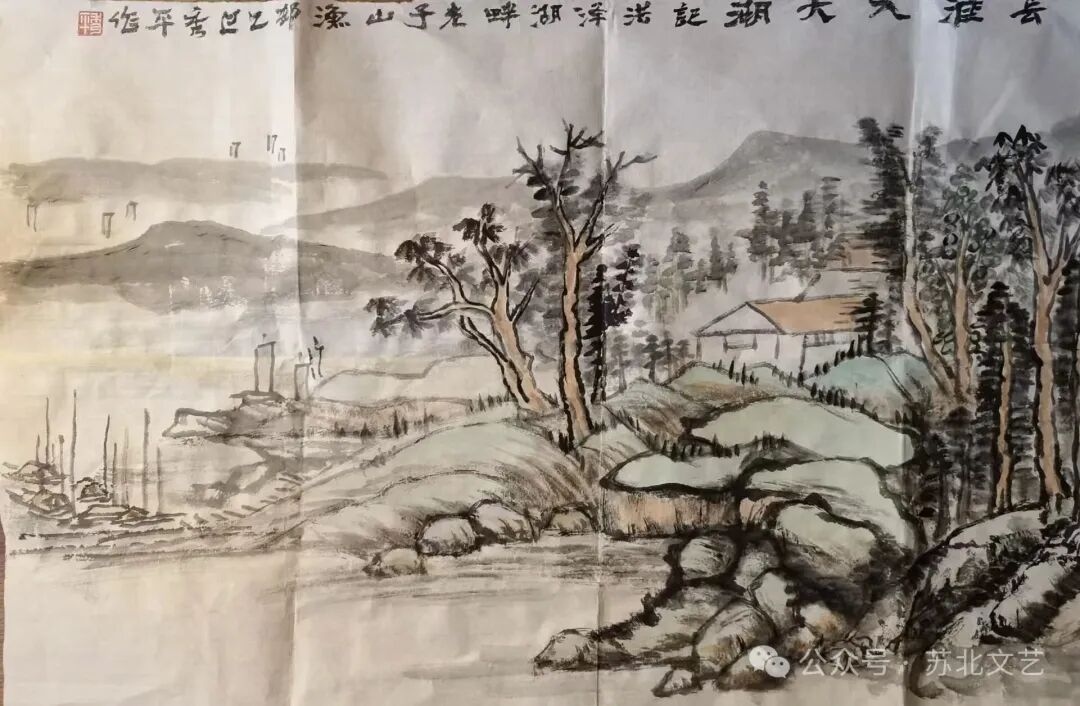 長淮入大湖 記洪泽湖畔老子山渔 乙巳秀平作
公众号·苏北文艺